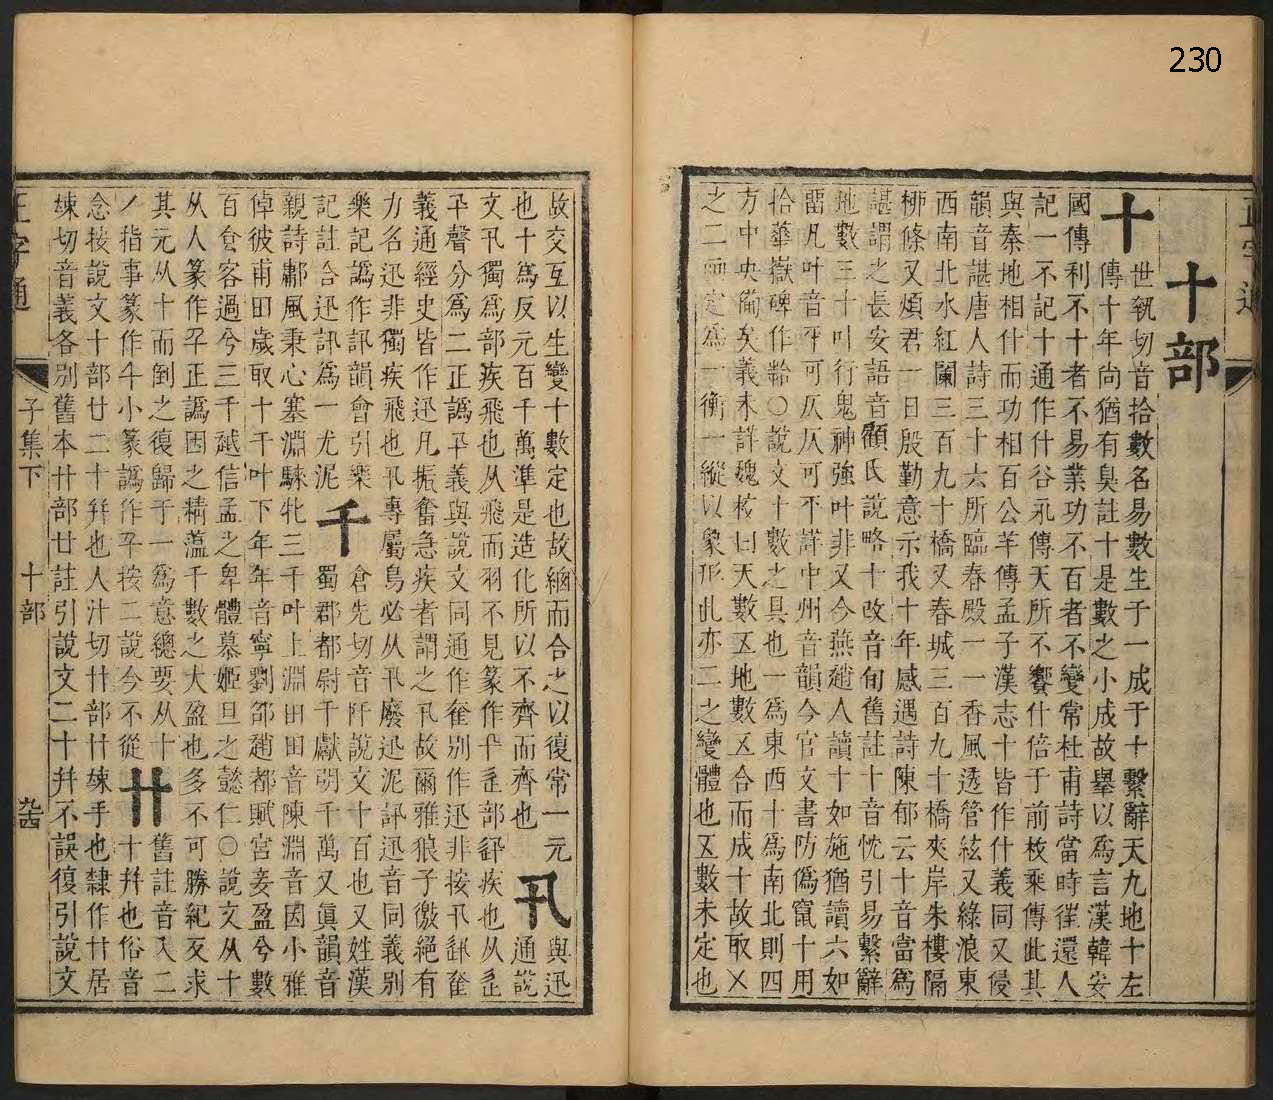 正字通
十部
十
世執切音拾數名易數生于一成于十繫辭天九地十左
傳十年尚猶有臭註十是數之小成故舉以爲言漢韓安
國傳利不十者不易業功不百者不變常杜甫詩當時徃還人
記一不記十通作什谷永傳天所不饗什倍于前枚乘傳此其
與秦地相什而功相百公羊傳孟子漢志十皆作什義同又侵
韻音諶唐人詩三十六所臨春殿一一香風透管絃又綠浪東
西南北水紅闌三百九十橋又春城三百九十橋夾岸朱樓隔
柳條又煩君一日殷勤意示我十年感遇詩陳郁云十音當爲
諶謂之長安語音顧氏說略十改音旬舊註十音忱引易繫辭
地數三十叶行鬼神強叶非又今燕趙人讀十如施猶讀六如
畱凡叶音平可仄仄可平詳中州音韻今官文書防僞竄十用
拾華嶽碑作〇說文十數之具也一爲東西十爲南北則四
方中央備矣義未詳魏校曰天數五地數五合而成十故取㐅
之二畫定爲一衡一縱以象形此亦二之變體也五數未定也
故交互以生變十數定也故緫而合之以復常一元
也十爲反元百千萬準是造化所以不齊而齊也
卂
與迅
通說
文卂獨爲部疾飛也从飛而羽不見篆作部疾也从
平聲分爲二正譌平義與說文同通作奞別作迅非按卂奞
義通經史皆作迅凡振奮急疾者謂之卂故爾雅狼子獥絕有
力名迅非獨疾飛也卂專屬鳥必从卂廢迅泥訊迅音同義別
樂記譌作訊韻會引樂
記註合迅訊爲一尤泥
千
倉先切音阡說文十百也又姓漢
蜀郡都尉千獻明千萬又眞韻音
親詩鄘風秉心塞淵騋牝三千叶上淵田田音陳淵音因小雅
倬彼甫田歲取十千叶下年年音寧劉邵趙都賦宮妾盈兮數
百食客過兮三千越信孟之卑體慕姬旦之懿仁〇說文从十
从人篆作正譌因之精薀千數之大盈也多不可勝紀反求
其元从十而倒之復歸于一爲意總要从十
丿指事篆作小篆譌作按二說今不從
廿
舊註音入二
十幷也俗音
念按說文十部廿二十幷也人汁切部竦手也隸作廾居
竦切音義各別舊本廾部廿註引說文二十幷不誤復引說文
正字通
子集下
十部
九四
230